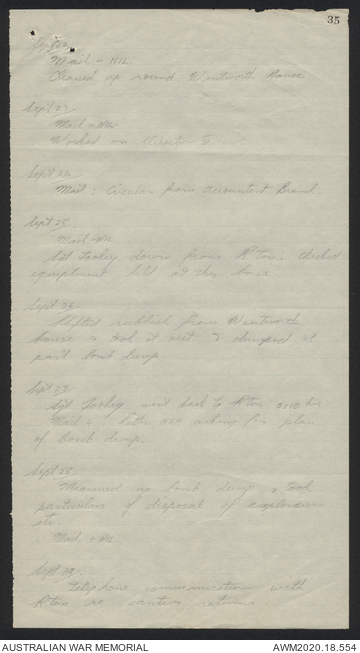 35
Sept 22
Mail - Nil.
Cleaned up round Wentworth House
Sept 23
Mail - Nil
Worked on
Sept 24
Mail : Circular from Accountant Branch
Sept 25
Mail - Nil
Sgt Tookey down from R'ton, checked
equiptment held at this base.
Sept 26
Shifted rubbish from Wentworth
house & took it out & dumped it
past bomb dump.
Sept 27
Sgt Tookey went back to R'ton hrs
Mail : letter asking for plan
of bomb dump.
Sept 28
Measured up bomb dump & took
particulars of disposal of explosives
etc.
Mail : Nil.
Sept 29
Telephone communication with
R'ton re canteen returns.
AUSTRALIAN WAR MEMORIAL
AWM2020.18.554